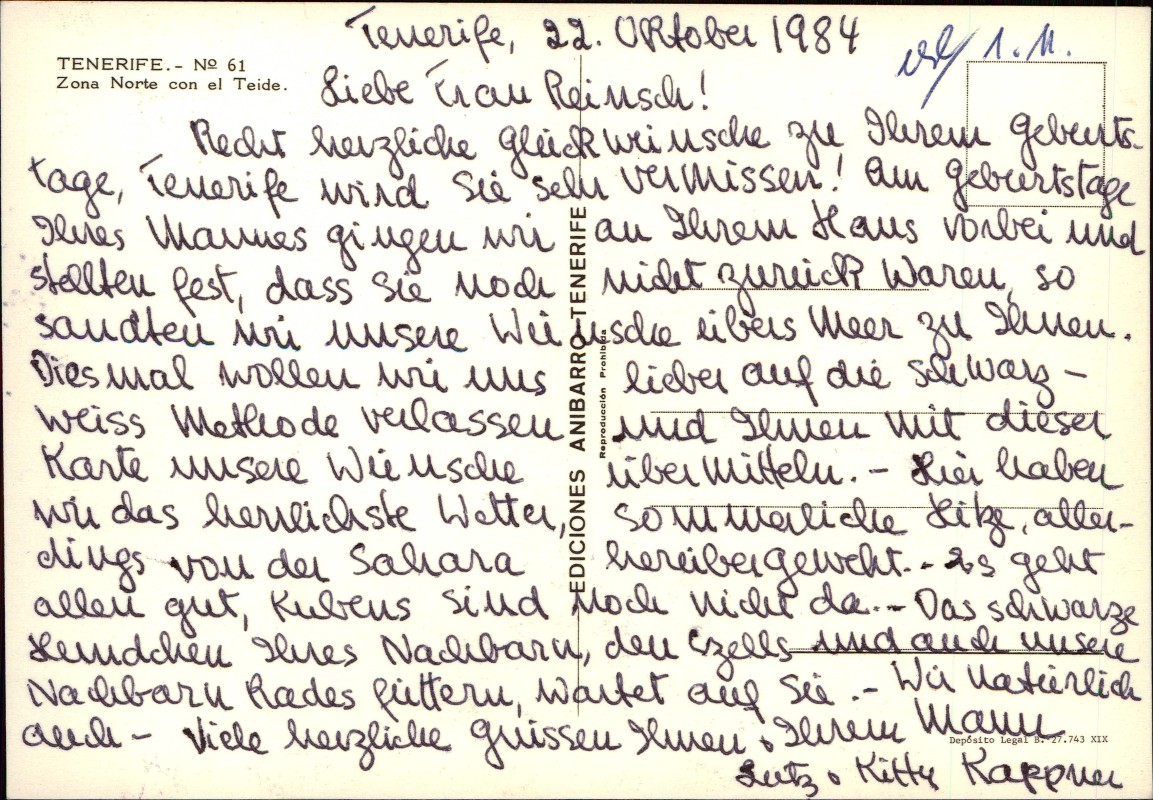 Tenerife, 22. Oktober 1984
erl 1. 11.
TENERIFE.- Nº 61
Zona Norte con el Teide.
Liebe Frau Reinsch!
Recht herzliche Glückwünsche zu Ihrem Geburts-
tage, Tenerife wird Sie sehr vermissen! Am Geburtstage
Ihres Mannes gingen wir an Ihrem Haus vorbei und
stellten fest, dass Sie noch nicht zurück waren, so
sandten wir unsere Wünsche übers Meer zu Ihnen.
Diesmal wollen wir uns lieber auf die schwarz-
weiss Methode verlassen und Ihnen mit dieser
Karte unsere Wünsche übermitteln.- Hier haben
wir das herrlichste Wetter, sommerliche Hitze, aller-
dings von der Sahara herübergeweht.- Es geht
allen gut, Kubens sind noch nicht da.- Das schwarze
Hündchen Ihres Nachbarn, den Czells und auch unsere
Nachbarn Rades füttern, wartet auf Sie.- Wir natürlich
auch - Viele herzliche Grüssen Ihnen & Ihrem Mann
Lutz & Kitty Kappner
EDICIONES ANIBARRO-TENERIFE
Reproducción Prohibida
Depósito Legal B. 27.743 XIX